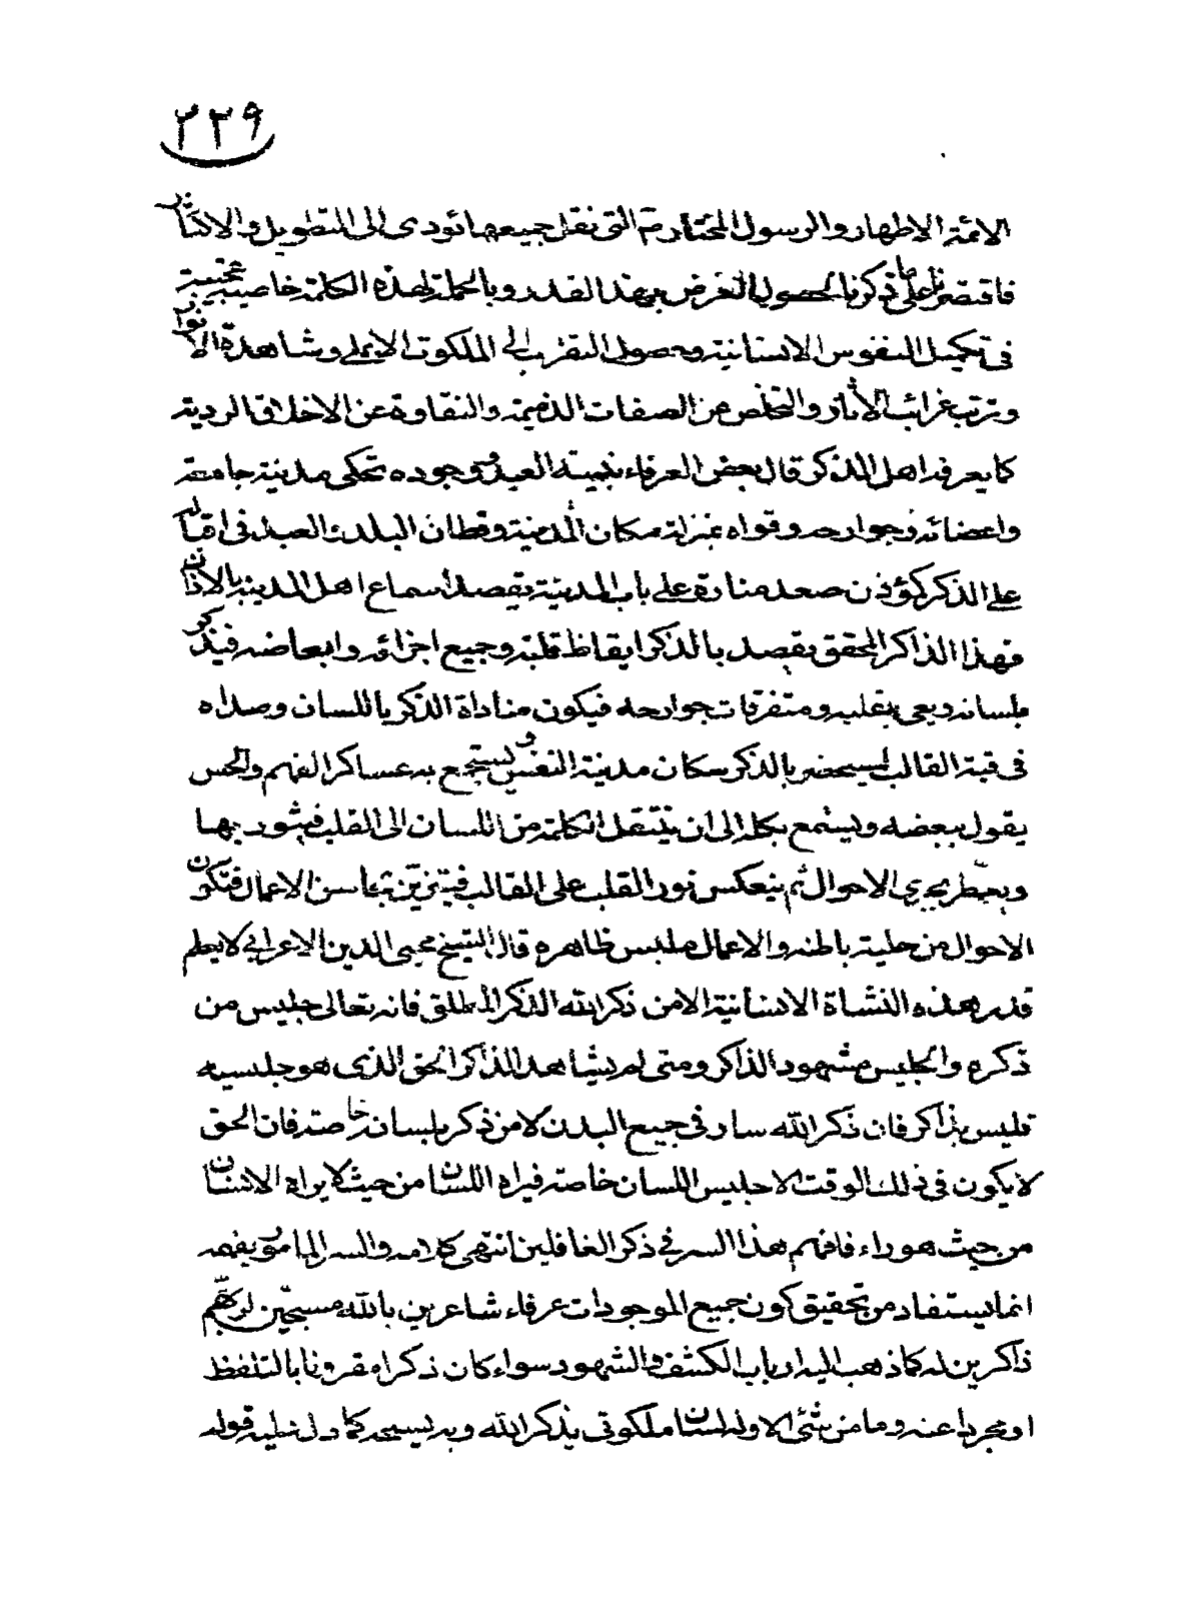 ٢٣٩
الائمة الاطهار والرسول المختار التى نقل جميعها تؤدى الى التطويل والاكثار
فاقتصرنا على ما ذكرنا لحصول الغرض بهذا القدر وبالجملة لهذه الكلمة خاصية عجيبة
فى تكميل النفوس الانسانية وحصول التقرب الى الملكوت الاعلى ومشاهدة الانوار
وترتب غرائب الآثار والتخلص من الصفات الذميمة والنقاوة عن الاخلاق الردية
كما يعرفه اهل الذكر قال بعض العرفاء بنية العبد ووجوده تحكى مدينة جامعة
واعضائه وجوارحه وقواه بمنزلة سكان المدينة وقطان البلد والعبد فى اقباله
على الذكر كمؤذن صعد منارة على باب المدينة يقصد اسماع اهل المدينة بالاذان
فهذا الذاكر المحقق يقصد بالذكر ايقاظ قلبه وجميع اجزائه وابعاضه فيذكر
بلسانه ويعى بقلبه ومتفرقات جوارحه فيكون مناداة الذكر باللسان وصداه
فى قبة القالب ليستحضر بالذكر سكان مدينة النفس ويستجمع به عساكر الفهم والحس
يقول ببعضه ويستمع بكله الى ان ينتقل الكلمة من اللسان الى القلب فيتنور بها
ويحظى بجدوى الاحوال ثم ينعكس نور القلب على القالب فيتزين بمحاسن الاعمال فتكون
الاحوال من حلية باطنه والاعمال ملبس ظاهره قال الشيخ محيى الدين الاعرابى لا يعلم
قدر هذه النشاة الانسانية الا من ذكر الله الذكر المطلق فانه تعالى جليس من
ذكره والجليس مشهود الذاكر ومتى لم يشاهد الذاكر الحق الذى هو جليسه
فليس بذاكر فان ذكر الله سار فى جميع البدن لا من ذكر بلسانه خاصة فان الحق
لا يكون فى ذلك الوقت الا جليس اللسان خاصة فيراه اللسان من حيث لا يراه الانسان
من حيث هو راء فافهم هذا السر فى ذكر الغافلين انتهى كلامه والسر المامور بفهمه
انما يستفاد من تحقيق كون جميع الموجودات عرفاء شاعرين بالله مسبحين لربهم
ذاكرين له كما ذهب اليه ارباب الكشف والشهود سواء كان ذكرا مقرونا بالتلفظ
او مجردا عنه وما من شئ الا وله لسان ملكوتى يذكر الله وبه يسبحه كما دل عليه قوله